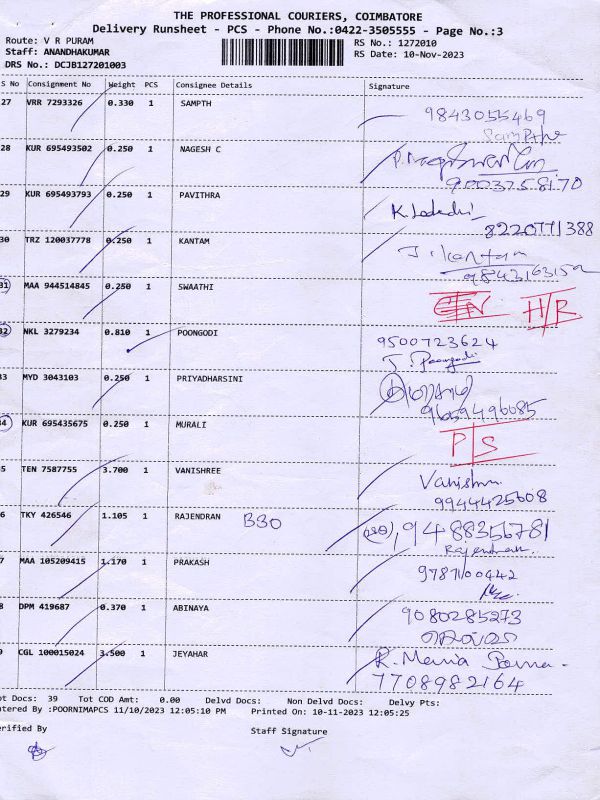 THE PROFESSIONAL COURIERS, COIMBATORE
Delivery Runsheet - PCS - Phone No.:0422-3505555 - Page No.:3
Route: V R PURAM
RS No.: 1272010
Staff: ANANDHAKUMAR
RS Date: 10-Nov-2023
DRS No.: DCJB127201003
S No Consignment No Weight PCS Consignee Details Signature
27 VRR 7293326 0.330 1 SAMPTH 9843055469
28 KUR 695493502 0.250 1 NAGESH C
9003758170
29 KUR 695493793 0.250 1 PAVITHRA
8220771388
30 TRZ 120037778 0.250 1 KANTAM J. Kantam
31 MAA 944514845 0.250 1 SWAATHI H/R
32 NKL 3279234 0.810 1 POONGODI 9500723624
J. Poongodi
33 MYD 3043103 0.250 1 PRIYADHARSINI
9659496085
34 KUR 695435675 0.250 1 MURALI P/S
5 TEN 7587755 3.700 1 VANISHREE
9944425608
6 TKY 426546 1.105 1 RAJENDRAN B30 9488356781
Rajendran.
7 MAA 105209415 1.170 1 PRAKASH 9787100442
8 DPM 419687 0.370 1 ABINAYA 9080285273
9 CGL 100015024 3.500 1 JEYAHAR R. Maria
7708982164
ot Docs: 39 Tot COD Amt: 0.00 Delvd Docs: Non Delvd Docs: Delvy Pts:
ntered By :POORNIMAPCS 11/10/2023 12:05:10 PM Printed On: 10-11-2023 12:05:25
erified By
Staff Signature